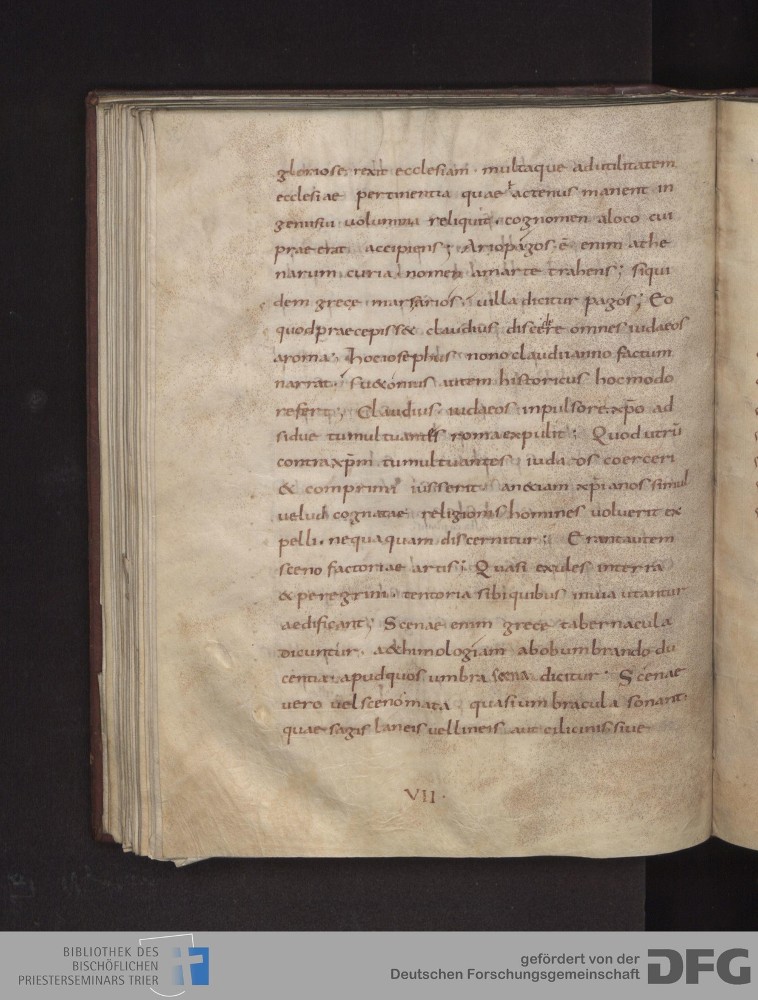 gloriose rexit ecclesiam . multaque adutilitatem
ecclesiae pertinentia quae actenus manent in
genii sui volumina reliquit . cognomen aloco cui
praeerat accipiens ; Ariopagos . ē enim athe
narum curia . nomen amarte trahens ; siqui
dem grece mars arios . villa dicitur pagos ; Eo
quod praecepisset claudius discedere omnes iudaeos
aroma . Hociosephus nono claudii anno factum
narrat . Suetonius autem historicus hocmodo
refert ; Claudius iudaeos inpulsore xp̄o ad
sidue tumultuantes roma expulit ; Quod utrū
contra xp̄m tumultuantes iudaeos coerceri
& comprimi iusserit . an &iam xp̄ianos simul
velud cognatae religionis homines voluerit ex
pelli . nequaquam discernitur ; Erant autem
scenofactoriae artis ; Quasi exules interrā
& peregrini . tentoria sibi quibus inuia utantur
aedificant ; Scenae enim grece tabernacula
dicuntur . aethimologiam abobumbrando du
centia . apudquos umbra scena dicitur . Scenae
vero vel scenomata quasi umbracula sonant
quae sagis laneis vel lineis aut cilicinis sive
VII .
BIBLIOTHEK DES
BISCHÖFLICHEN
PRIESTERSEMINARS TRIER
gefördert von der
Deutschen Forschungsgemeinschaft
DFG